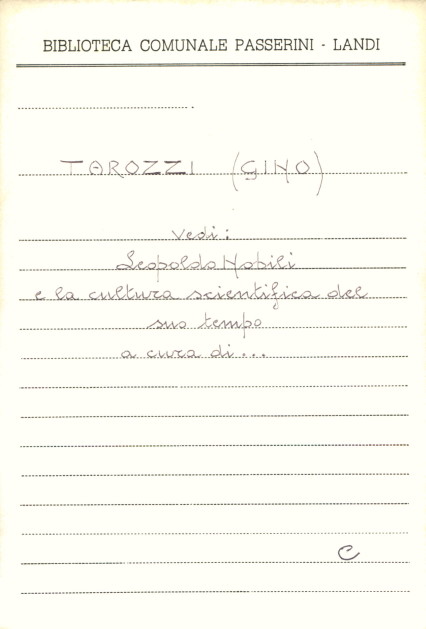 BIBLIOTECA COMUNALE PASSERINI - LANDI
TAROZZI (GINO)
Vedi:
Leopoldo Nobili
e la cultura scientifica del
suo tempo
a cura di...
C